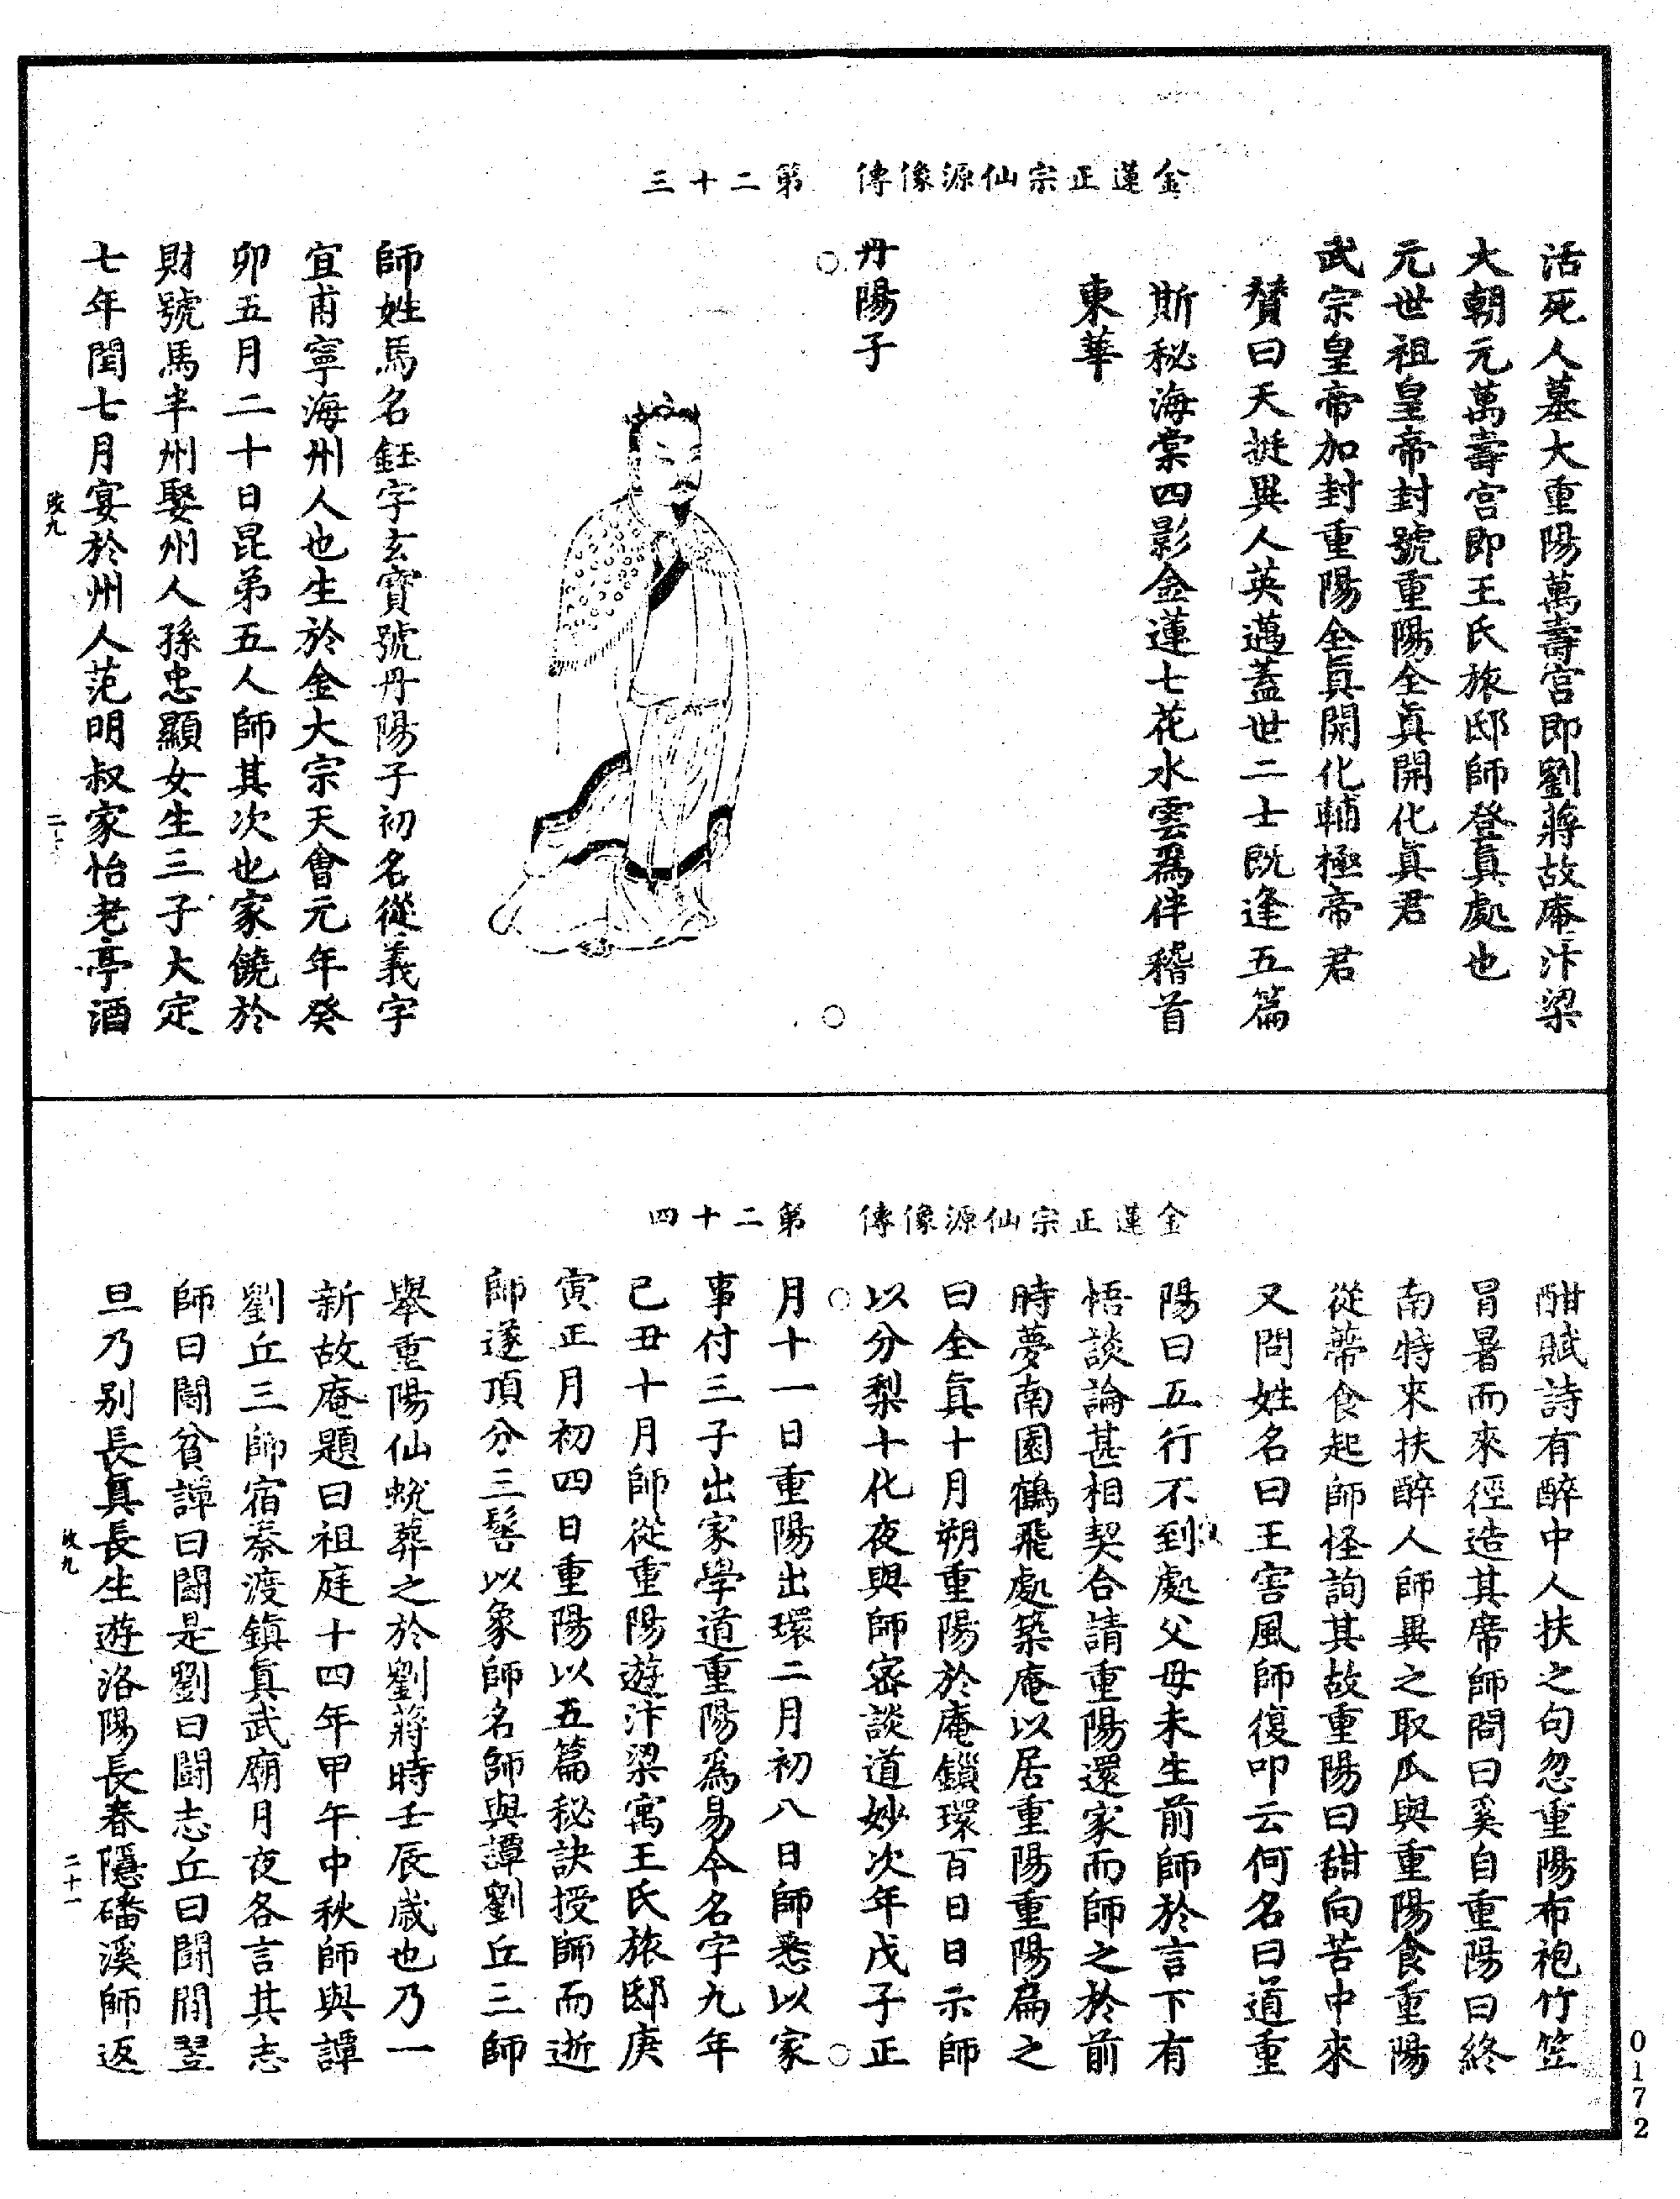 金蓮正宗仙源像傳　第二十三
活死人墓大重陽萬壽宮即劉蔣故庵汴梁
大朝元萬壽宮即王氏旅邸師登真處也
元世祖皇帝封號重陽全真開化真君
武宗皇帝加封重陽全真開化輔極帝君
贊曰天挺異人英邁蓋世二士既逢五篇
斯秘海棠四影金蓮七花水雲爲伴稽首
東華
丹陽子
師姓馬名鈺字玄寶號丹陽子初名從義字
宜甫寧海州人也生於金大宗天會元年癸
卯五月二十日昆弟五人師其次也家饒於
財號馬半州娶州人孫忠顯女生三子大定
七年閏七月宴於州人范明叔家怡老亭酒
致九
金蓮正宗仙源像傳　第二十四
酣賦詩有醉中人扶之句忽重陽布袍竹笠
冒暑而來徑造其席師問曰奚自重陽曰終
南特來扶醉人師異之取瓜與重陽食重陽
從蒂食起師怪詢其故重陽曰甜向苦中來
又問姓名曰王害風師復叩云何名曰道重
陽曰五行不到處父母未生前師於言下有
悟談論甚相契合請重陽還家而師之於前
時夢南園鶴飛處築庵以居重陽重陽扁之
曰全真十月朔重陽於庵鎖環百日日示師
以分梨十化夜與師密談道妙次年戊子正
月十一日重陽出環二月初八日師悉以家
事付三子出家學道重陽爲易今名字九年
己丑十月師從重陽遊汴梁寓王氏旅邸庚
寅正月初四日重陽以五篇秘訣授師而逝
師遂頂分三髻以象師名師與譚劉丘三師
舉重陽仙蛻葬之於劉蔣時壬辰歲也乃一
新故庵題曰祖庭十四年甲午中秋師與譚
劉丘三師宿秦渡鎮真武廟月夜各言其志
師曰鬪貧譚曰鬪是劉曰鬪志丘曰鬪閒翌
旦乃别長真長生遊洛陽長春隱磻溪師返
致九
二十一
0172